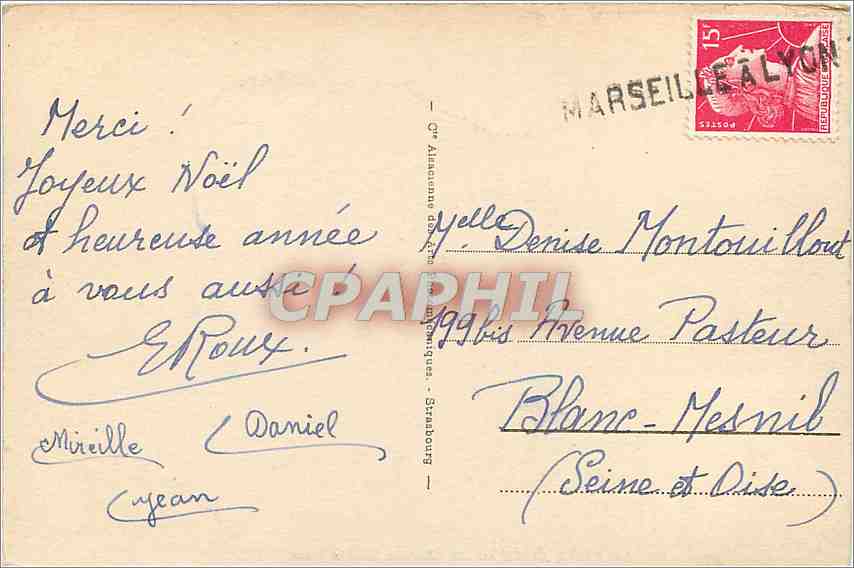 Merci !
Joyeux Noël
et heureuse année
à vous aussi !
E Roux.
Mireille
Daniel
Jean
— Cie Alsacienne des Arts Photomécaniques. - Strasbourg —
MARSEILLE À LYON
15F
POSTES
REPUBLIQUE FRANÇAISE
Melle Denise Montouillout
199bis Avenue Pasteur
Blanc-Mesnil
(Seine et Oise)
CPAPHIL